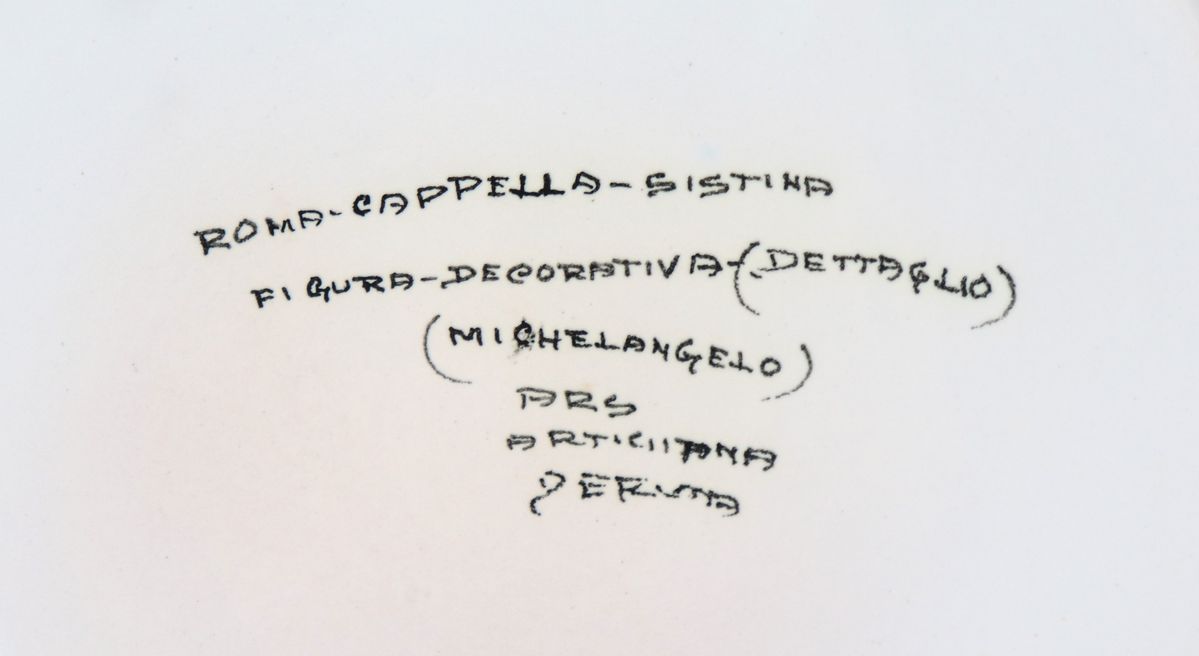 ROMA-CAPPELLA-SISTINA
FIGURA-DECORATIVA-(DETTAGLIO)
(MICHELANGELO)
ARS
DERUTA